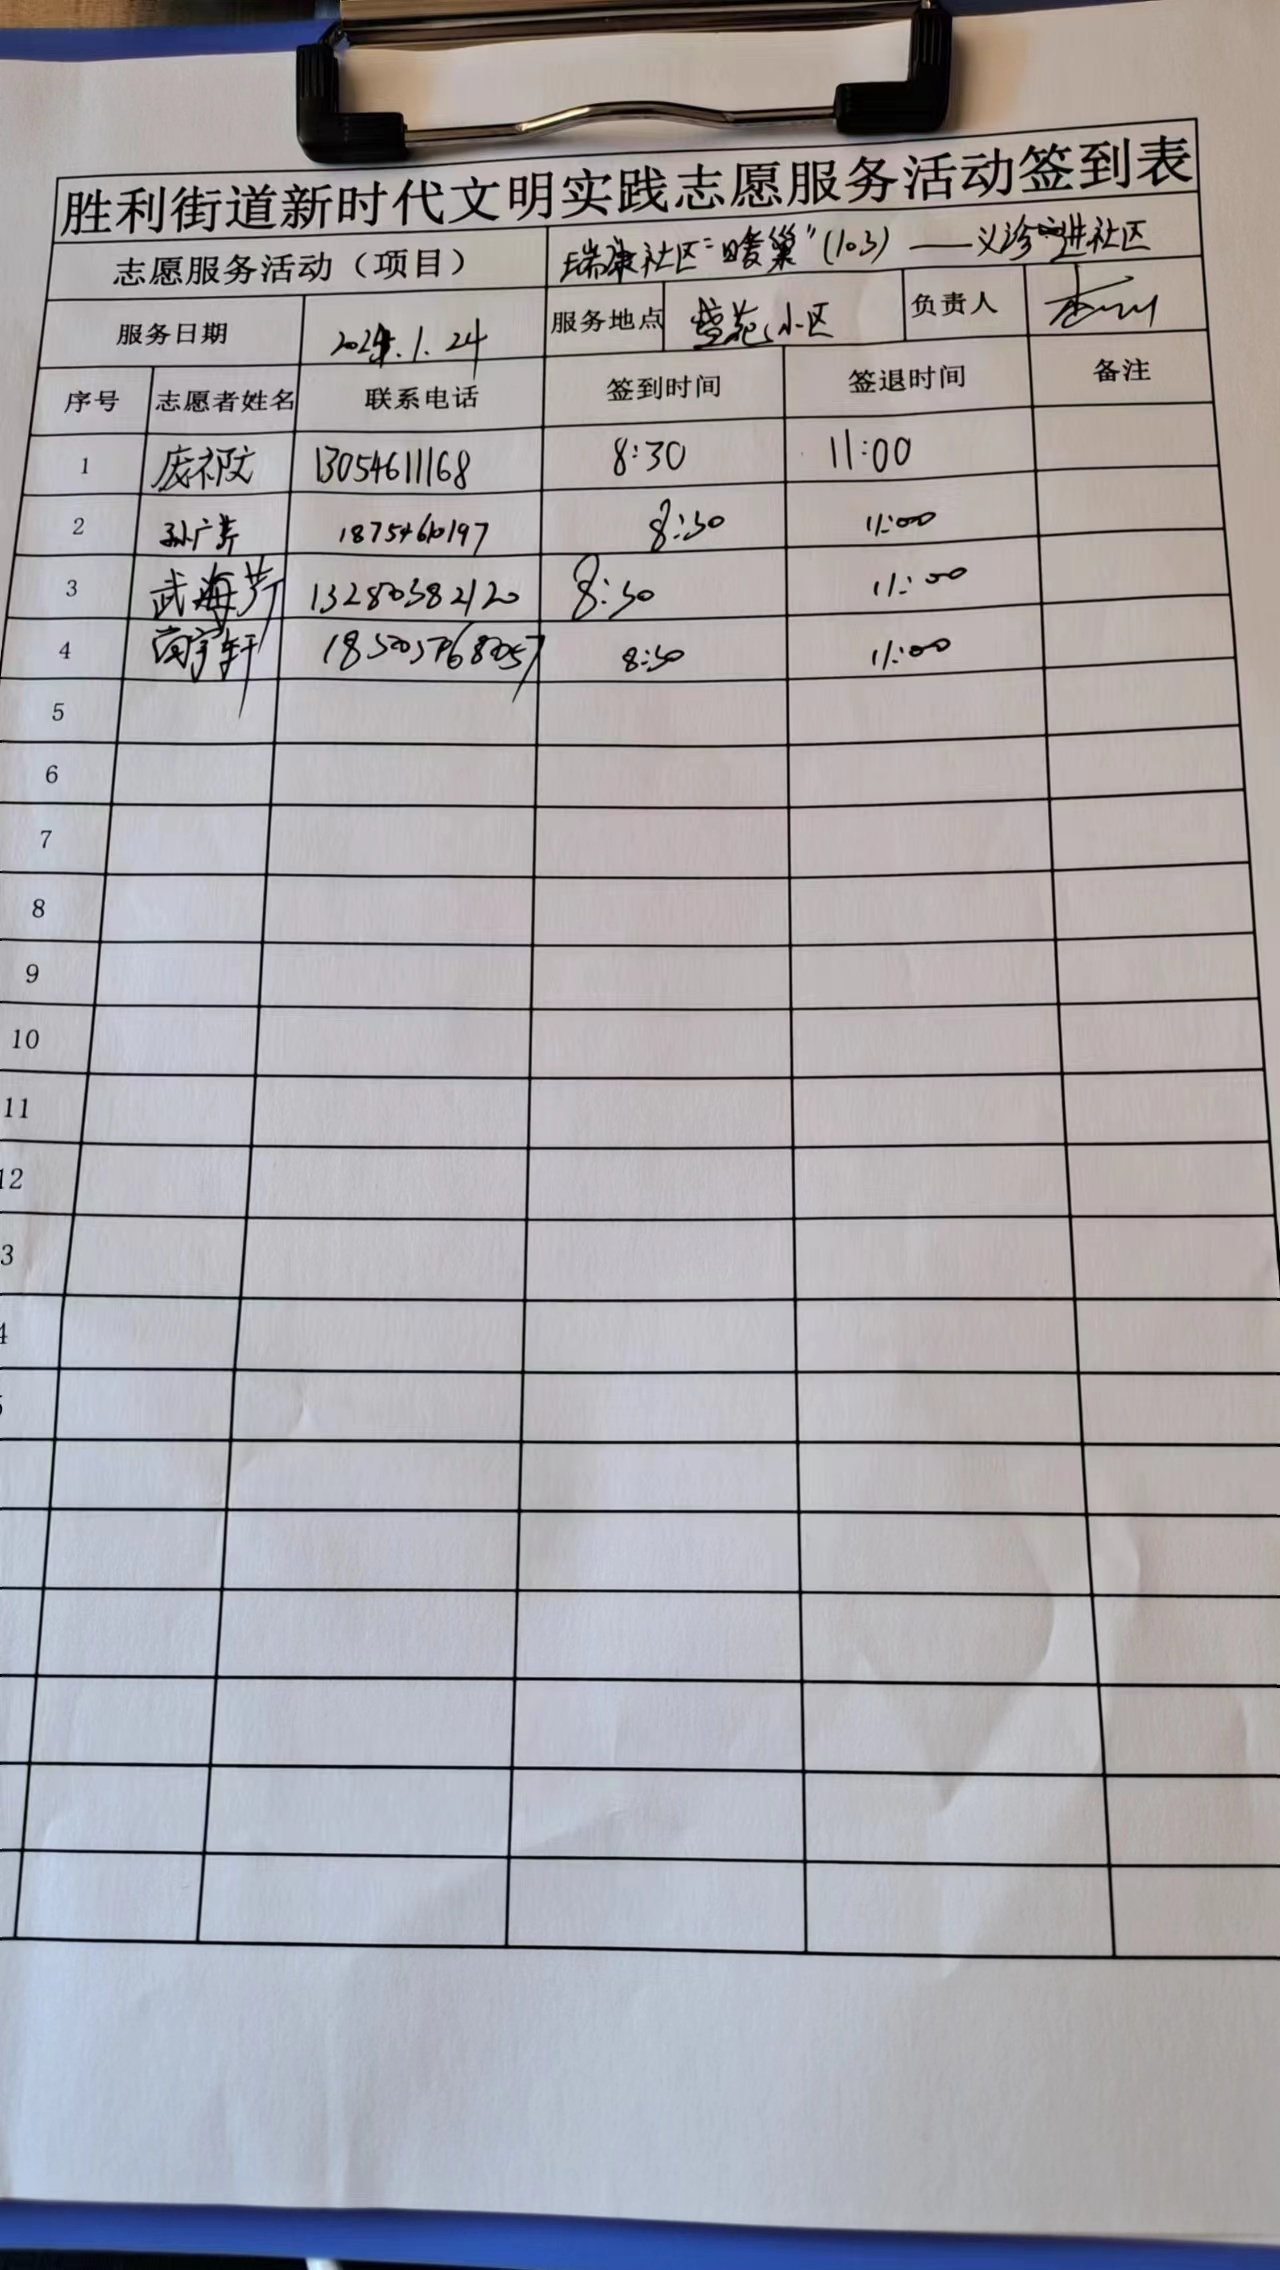 胜利街道新时代文明实践志愿服务活动签到表
志愿服务活动（项目） 瑞康社区"暖巢"(103)——义诊进社区
服务日期 1.24 服务地点 莹苑小区 负责人
序号 志愿者姓名 联系电话 签到时间 签退时间 备注
1 庞祁文 13054611168 8:30 11:00
2 孙广芳 8:30 11:00
3 武海芳 13280382120 8:30 11:00
4 8:30 11:00
5
6
7
8
9
10
11
12
3
4
5